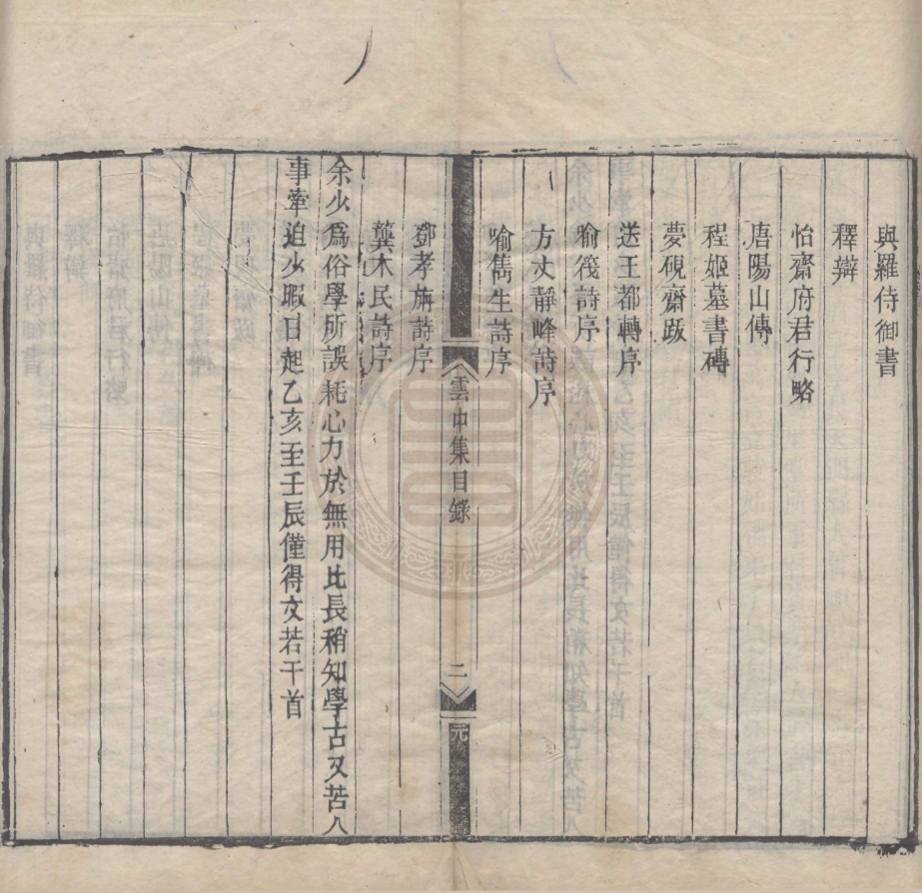 與羅侍御書
釋辯
怡齋府君行略
唐陽山傳
程姬墓書磚
夢硯齋跋
送王都轉序
喻筏詩序
方丈靜峰詩序
喻雋生詩序
雲中集目錄
二
元
鄧孝旃詩序
龔木民詩序
余少爲俗學所誤耗心力於無用比長稍知學古又苦人
事牽迫少暇日起乙亥至壬辰僅得文若干首